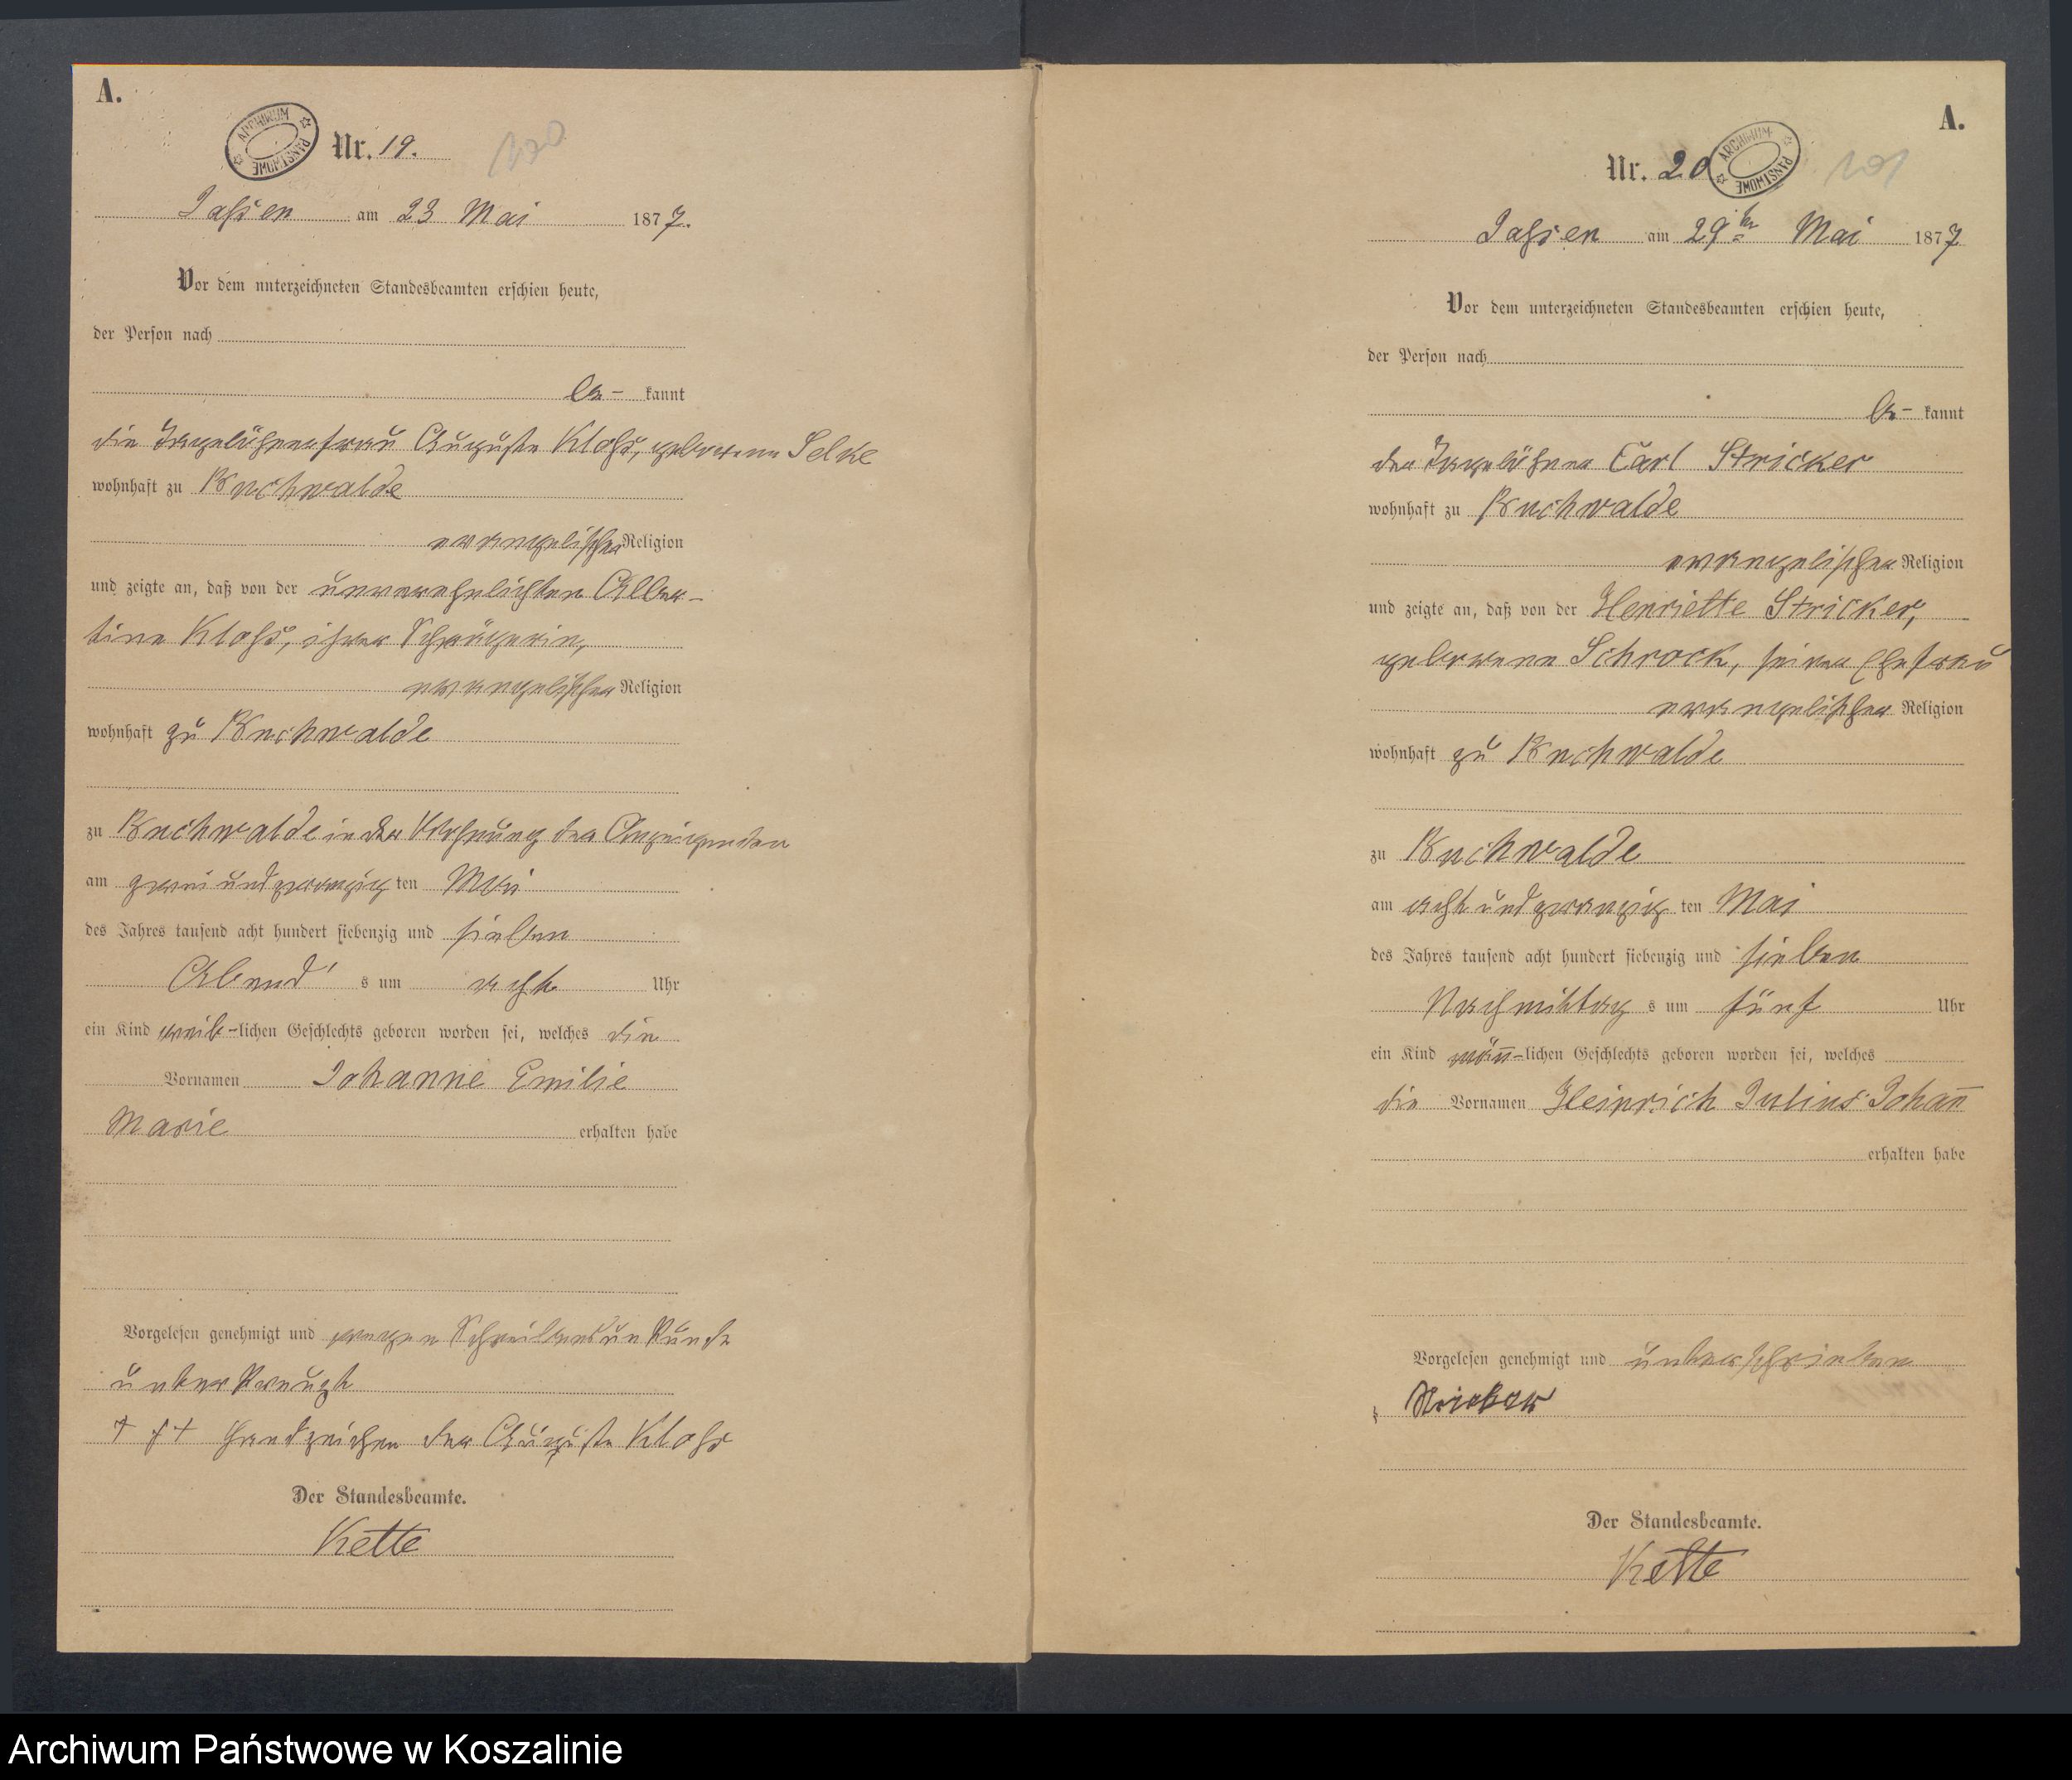 A.
ARCHIWUM PAŃSTWOWE
Nr. 19.
Jassen am 23 Mai 1877.
Vor dem unterzeichneten Standesbeamten erschien heute,
der Person nach
be- kannt
die Tagelöhnerfrau Auguste Klohs, geborene Selke
wohnhaft zu Buchwalde
evangelischer Religion
und zeigte an, daß von der unverehelichten Alber-
tine Klohs, ihrer Schwägerin,
evangelischer Religion
wohnhaft zu Buchwalde
zu Buchwalde in der Wohnung der Anzeigenden
am zwei und zwanzig ten Mai
des Jahres tausend acht hundert siebenzig und sieben
Abend s um acht Uhr
ein Kind weib-lichen Geschlechts geboren worden sei, welches die
Vornamen Johanne Emilie
Marie erhalten habe
Vorgelesen genehmigt und wegen Schreibensunkunde
unterkreuzt
+ + + Handzeichen der Auguste Klohs
Der Standesbeamte.
Kette
A.
ARCHIWUM PAŃSTWOWE
Nr. 20
101
Jassen am 29ten Mai 1877
Vor dem unterzeichneten Standesbeamten erschien heute,
der Person nach
be- kannt
der Tagelöhner Carl Stricker
wohnhaft zu Buchwalde
evangelischer Religion
und zeigte an, daß von der Henriette Stricker,
geborene Schrock, seiner Ehefrau
evangelischer Religion
wohnhaft zu Buchwalde
zu Buchwalde
am acht und zwanzig ten Mai
des Jahres tausend acht hundert siebenzig und sieben
Nachmittag s um fünf Uhr
ein Kind män̄-lichen Geschlechts geboren worden sei, welches
die Vornamen Heinrich Julius Johan̄
erhalten habe
Vorgelesen genehmigt und unterschrieben
Der Standesbeamte.
Kette
Archiwum Państwowe w Koszalinie